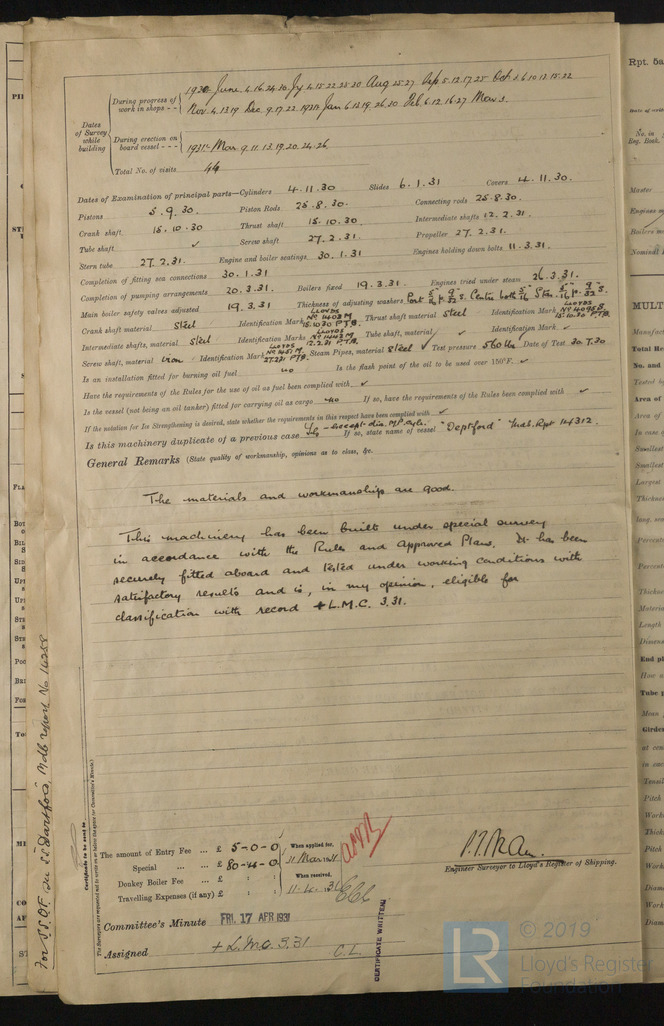 Dates of Survey while building
During progress of work in shops - -
1930 June 4.16.24.30 Jy 4.15.22.25.30 Aug 25.27 Sep 5.12.17.25 Oct 3.6.10.12.15.22
Nov 4.13.19 Dec 9.17.22 1931 Jan 6.13.19.26.30 Feb 6.12.16.27 Mar 3.
During erection on board vessel - - -
1931 Mar 9.11.13.19.20.24.26
Total No. of visits 44
Dates of Examination of principal parts—Cylinders 4.11.30. Slides 6.1.31 Covers 4.11.30.
Pistons 5.9.30. Piston Rods 25.8.30. Connecting rods 25.8.30.
Crank shaft 15.10.30 Thrust shaft 15.10.30. Intermediate shafts 12.2.31.
Tube shaft ✓ Screw shaft 27.2.31. Propeller 27.2.31.
Stern tube 27.2.31. Engine and boiler seatings 30.1.31 Engines holding down bolts 11.3.31.
Completion of fitting sea connections 30.1.31
Completion of pumping arrangements 20.3.31. Boilers fixed 19.3.31. Engines tried under steam 26.3.31.
Main boiler safety valves adjusted 19.3.31 Thickness of adjusting washers Port
Crank shaft material Steel Identification Mark LLOYDS 15.10.30 P.T.B. Thrust shaft material Steel Identification Mark LLOYDS 15.10.30 P.T.B.
Intermediate shafts, material Steel Identification Marks LLOYDS 12.2.31 P.T.B. Tube shaft, material ✓ Identification Mark ✓
Screw shaft, material Iron Identification Mark LLOYDS 27.2.31 P.T.B. Steam Pipes, material Steel ✓ Test pressure 560 lbs Date of Test 30.7.30
Is an installation fitted for burning oil fuel no Is the flash point of the oil to be used over 150°F. ✓
Have the requirements of the Rules for the use of oil as fuel been complied with ✓
Is the vessel (not being an oil tanker) fitted for carrying oil as cargo no If so, have the requirements of the Rules been complied with ✓
If the notation for Ice Strengthening is desired, state whether the requirements in this respect have been complied with ✓
Is this machinery duplicate of a previous case Yes - except dia. M.P. cyl. If so, state name of vessel "Deptford" Mdb. Rpt 14312.
General Remarks (State quality of workmanship, opinions as to class, &c.
The materials and workmanship are good.
This machinery has been built under special survey
in accordance with the Rules and Approved Plans. It has been
securely fitted aboard and tested under working conditions with
satisfactory results and is, in my opinion, eligible for
classification with record + L.M.C. 3.31.
Certificate to be sent to
The amount of Entry Fee ... £ 5-0-0
Special ... £ 80-4-0
Donkey Boiler Fee ... £ : :
Travelling Expenses (if any) £ : :
When applied for,
11 Mar 1931
When received,
11.4.31
Engineer Surveyor to Lloyd's Register of Shipping.
Committee's Minute FRI. 17 APR 1931
Assigned + L.M.C. 3.31
C.L.
CERTIFICATE WRITTEN
Rpt. 5a
MULT
© 2019
Lloyd's Register
Foundation
LR